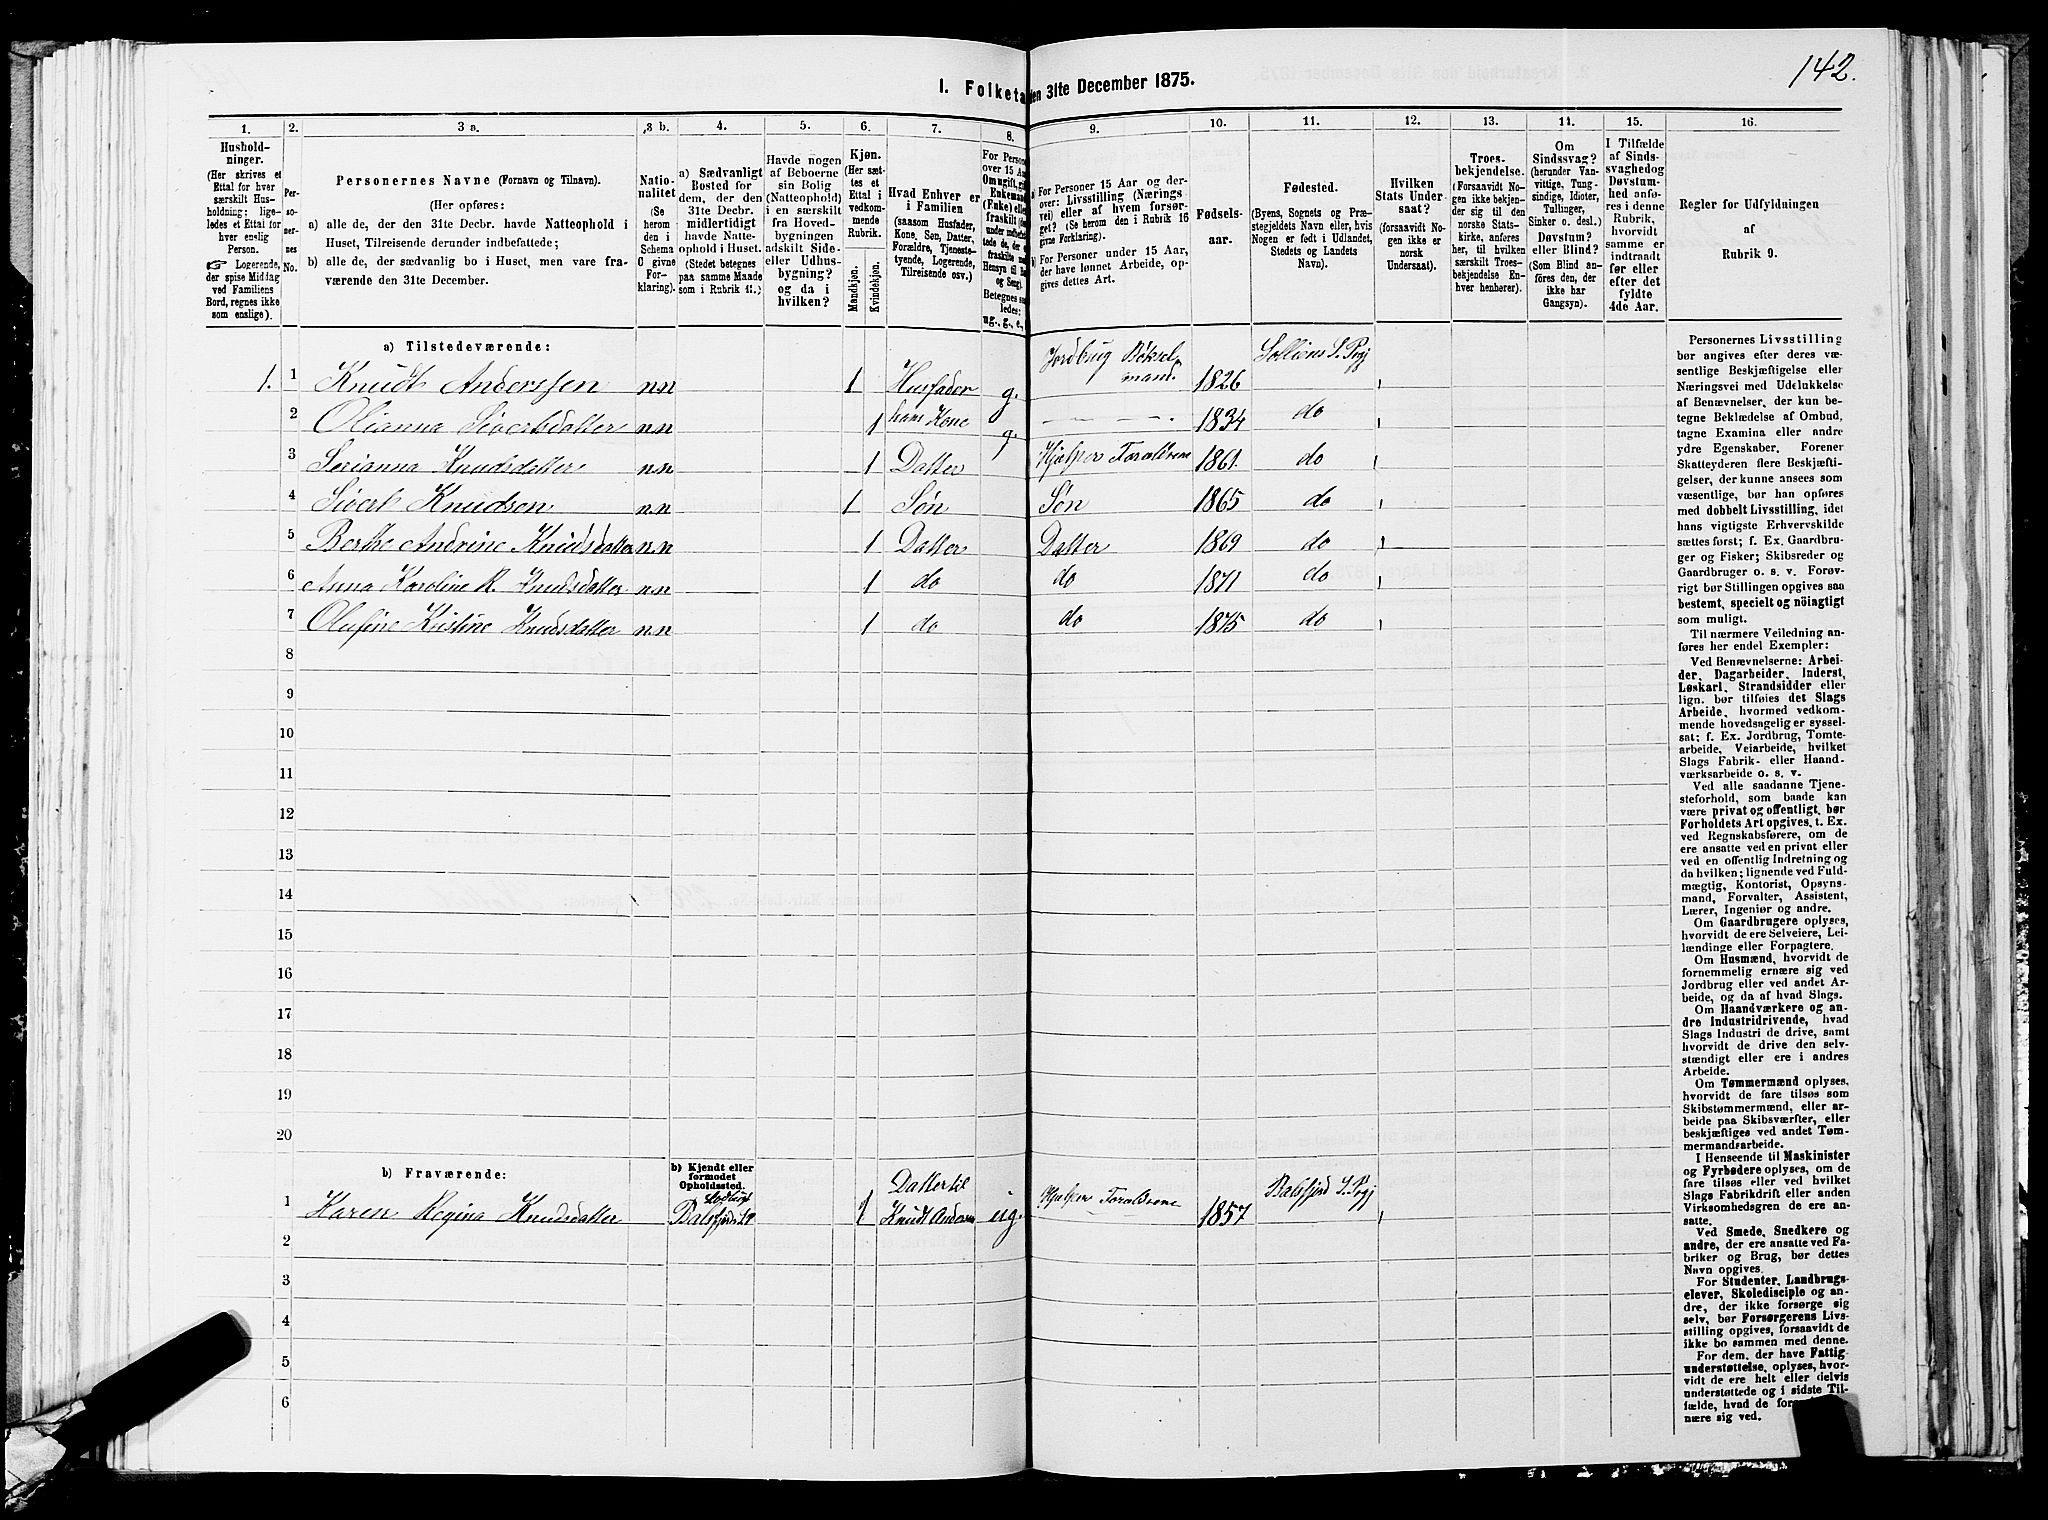 142.
I. Folketa
den 31te December 1875.
1. 2. 3 a. 3 b. 4. 5. 6. 7. 8. 9. 10. 11. 12. 13. 14. 15. 16.
Hushold-
ninger.
(Her skrives et
Ettal for hver
særskilt Hus-
holdning; lige-
ledes et Ettal for
hver enslig
Person.
☞ Logerende,
der spise Middag
ved Familiens
Bord, regnes ikke
som enslige).
Per-
so-
ner-
nes
No.
Personernes Navne (Fornavn og Tilnavn).
(Her opføres:
a) alle de, der den 31te Decbr. havde Natteophold i
Huset, Tilreisende derunder indbefattede;
b) alle de, der sædvanlig bo i Huset, men vare fra-
værende den 31te December.
Natio-
nalitet
(Se
herom
den i
Schema
C givne
For-
klaring).
a) Sædvanligt
Bosted for
dem, der den
31te Decbr.
midlertidigt
havde Natte-
ophold i Huset.
(Stedet betegnes
paa samme Maade
som i Rubrik 11.)
Havde nogen
af Beboerne
sin Bolig
(Natteophold)
i en særskilt
fra Hoved-
bygningen
adskilt Side-
eller Udhus-
bygning?
og da i
hvilken?
Kjøn.
(Her sæt-
tes et
Ettal i
vedkom-
mende
Rubrik.
Mandkjøn.
Kvindekjøn.
Hvad Enhver er
i Familien
(saasom Husfader,
Kone, Søn, Datter,
Forældre, Tjeneste-
tyende, Logerende,
Tilreisende osv.)
For Person
over 15 Aar
Betegnes
ledes:
ug., g., e.,
a) For Personer 15 Aar og der-
over: Livsstilling (Nærings
vei) eller af hvem forsør-
get? (Se herom den i Rubrik 16
givne Forklaring).
b) For Personer under 15 Aar,
der have lønnet Arbeide, op-
gives dettes Art.
Fødsels-
aar.
Fødested.
(Byens, Sognets og Præ-
stegjeldets Navn eller, hvis
Nogen er født i Udlandet,
Stedets og Landets
Navn).
Hvilken
Stats Under-
saat?
(forsaavidt No-
gen ikke er
norsk
Undersaat).
Troes-
bekjendelse.
(Forsaavidt No-
gen ikke bekjen-
der sig til den
norske Stats-
kirke, anføres
her, til hvilken
særskilt Troes-
bekjendelse En-
hver henhører).
Om
Sindssvag?
(herunder Van-
vittige, Tung-
sindige, Idioter,
Tullinger,
Sinker o. desl.)
Døvstum?
eller Blind?
(Som Blind an-
føres den, der
ikke har
Gangsyn).
I Tilfælde
af Sinds-
svaghed og
Døvstum-
hed anfø-
res i denne
Rubrik,
hvorvidt
samme er
indtraadt
før eller
efter det
fyldte
4de Aar.
Regler for Udfyldningen
af
Rubrik 9.
a) Tilstedeværende:
1. 1 Knudt Anderssen n.n 1 Husfader g. Jordbrug 1826 S. Pgj
2 Olianna Sivertsdatter n.n 1 hans Kone g. — — — 1834 do
3 Serianna Knudsdatter n.n 1 Datter Hjælper Forældrene 1861 do
4 Sivert Knudsen n.n 1 Søn Søn 1865 do
5 Berthe Andrine Knudsdatter n.n 1 Datter Datter 1869 do
6 Anna Karoline R. Knudsdatter n.n 1 do do 1871 do
7 Olufine Kristine Knudsdatter n.n 1 do do 1875 do
8
9
10
11
12
13
14
15
16
17
18
19
20
b) Fraværende:
b) Kjendt eller
formodet
Opholdssted.
1 Karen Regina Knudsdatter 1 Datter til Knudt Anders ug. Hjælper Forældrene 1857 Balsfjord S. Pgj
2
3
4
5
6
Personernes Livsstilling
bør angives efter deres væ-
sentlige Beskjæftigelse eller
Næringsvei med Udelukkelse
af Benævnelser, der kun be-
tegne Beklædelse af Ombud,
tagne Examina eller andre
ydre Egenskaber. Forener
Skatteyderen flere Beskjæfti-
gelser, der kunne ansees som
væsentlige, bør han opføres
med dobbelt Livsstilling, idet
hans vigtigste Erhvervskilde
sættes først; f. Ex. Gaardbru-
ger og Fisker; Skibsreder og
Gaardbruger o. s. v. Forøv-
rigt bør Stillingen opgives saa
bestemt, specielt og nöiagtigt
som muligt.
Til nærmere Veiledning an-
føres her endel Exempler:
Ved Benævnelserne: Arbei-
der, Dagarbeider, Inderst,
Løskarl, Strandsidder eller
lign. bør tilføies det Slags
Arbeide, hvormed vedkom-
mende hovedsagelig er syssel-
sat; f. Ex. Jordbrug, Tomte-
arbeide, Veiarbeide, hvilket
Slags Fabrik- eller Haand-
værksarbeide o. s. v.
Ved alle saadanne Tjene-
steforhold, som baade kan
være privat og offentligt, bør
Forholdets Art opgives, t. Ex.
ved Regnskabsførere, om de
ere ansatte ved en privat eller
ved en offentlig Indretning og
da hvilken; lignende ved Fuld-
mægtig, Kontorist, Opsyns-
mand, Forvalter, Assistent,
Lærer, Ingeniør og andre.
Om Gaardbrugere oplyses,
hvorvidt de ere Selveiere, Lei-
lændinge eller Forpagtere.
Om Husmænd, hvorvidt de
fornemmelig ernære sig ved
Jordbrug eller ved andet Ar-
beide, og da af hvad Slags.
Om Haandværkere og an-
dre Industridrivende, hvad
Slags Industri de drive, samt
hvorvidt de drive den selv-
stændigt eller ere i andres
Arbeide.
Om Tømmermænd oplyses,
hvorvidt de fare tilsøs som
Skibstømmermænd, eller ar-
beide paa Skibsværfter, eller
beskjæftiges ved andet Tøm-
mermandsarbeide.
I Henseende til Maskinister
og Fyrbødere oplyses, om de
fare tilsøs eller ved hvilket
Slags Fabrikdrift eller anden
Virksomhedsgren de ere an-
satte.
Ved Smede, Snedkere og
andre, der ere ansatte ved Fa-
briker og Brug, bør dettes
Navn opgives.
For Studenter, Landbrugs-
elever, Skoledisciple og an-
dre, der ikke forsørge sig
selv, bør Forsørgerens Livs-
stilling opgives, forsaavidt de
ikke bo sammen med denne.
For dem, der have Fattig-
understøttelse, oplyses, hvor-
vidt de ere helt eller delvis
understøttede og i sidste Til-
fælde, hvad de
nære sig ved.